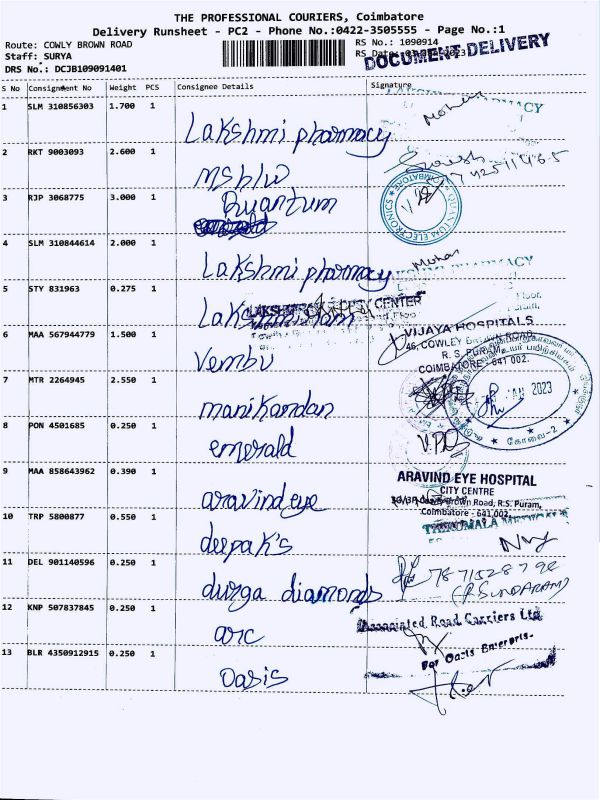 THE PROFESSIONAL COURIERS, Coimbatore
Delivery Runsheet - PC2 - Phone No.:0422-3505555 - Page No.:1
Route: COWLY BROWN ROAD
RS No.: 1090914
Staff: SURYA
RS Date:
DOCUMENT DELIVERY
DRS No.: DCJB109091401
S No Consignment No Weight PCS Consignee Details Signature
1 SLM 310856303 1.700 1 Lakshmi pharmacy
Mohan
2 RKT 9003093 2.600 1 msblw
3 RJP 3068775 3.000 1 Quantum
QUANTUM ELECTRONICS COIMBATORE
4 SLM 310844614 2.000 1 Lakshmi pharmacy
Mohan
PHARMACY
5 STY 831963 0.275 1
CENTER
6 MAA 567944779 1.500 1 Vembu
VIJAYA HOSPITALS
46, COWLEY BROWN ROAD,
R. S. PURAM,
COIMBATORE - 641 002.
7 MTR 2264945 2.550 1 manikandan
JAN 2023
கோவை-2
8 PON 4501685 0.250 1 emerald
9 MAA 858643962 0.390 1 aravind eye
ARAVIND EYE HOSPITAL
CITY CENTRE
Brown Road, R.S. Puram,
Coimbatore - 641 002.
10 TRP 5800877 0.550 1 deepak's
THIRUMALA MEDICALS
11 DEL 901140596 0.250 1 durga diamonds
(P. SUNDARAM)
12 KNP 507837845 0.250 1 arc
Associated Road Carriers Ltd
13 BLR 4350912915 0.250 1 oasis
For Oasis Enterpris-